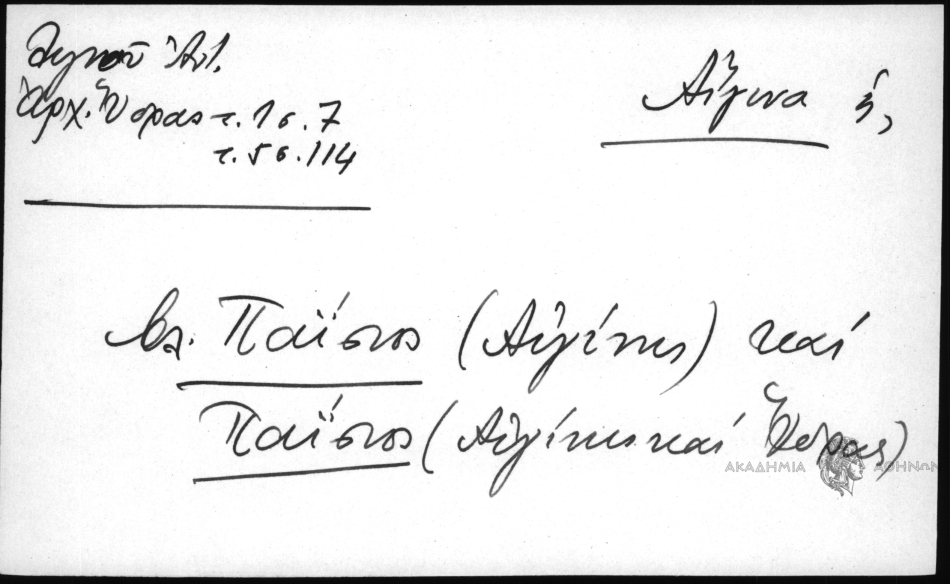 Λιγνοῦ Ἀντ.
Ἀρχ. Ὕδρας τ. 1 σ. 7
τ. 5 σ. 114
Αἴγινα ἡ,
βλ. Παΐσιος (Αἰγίνης) καί
Παΐσιος (Αἰγίνης καί Ὕδρας)
ΑΚΑΔΗΜΙΑ ΑΘΗΝΩΝ